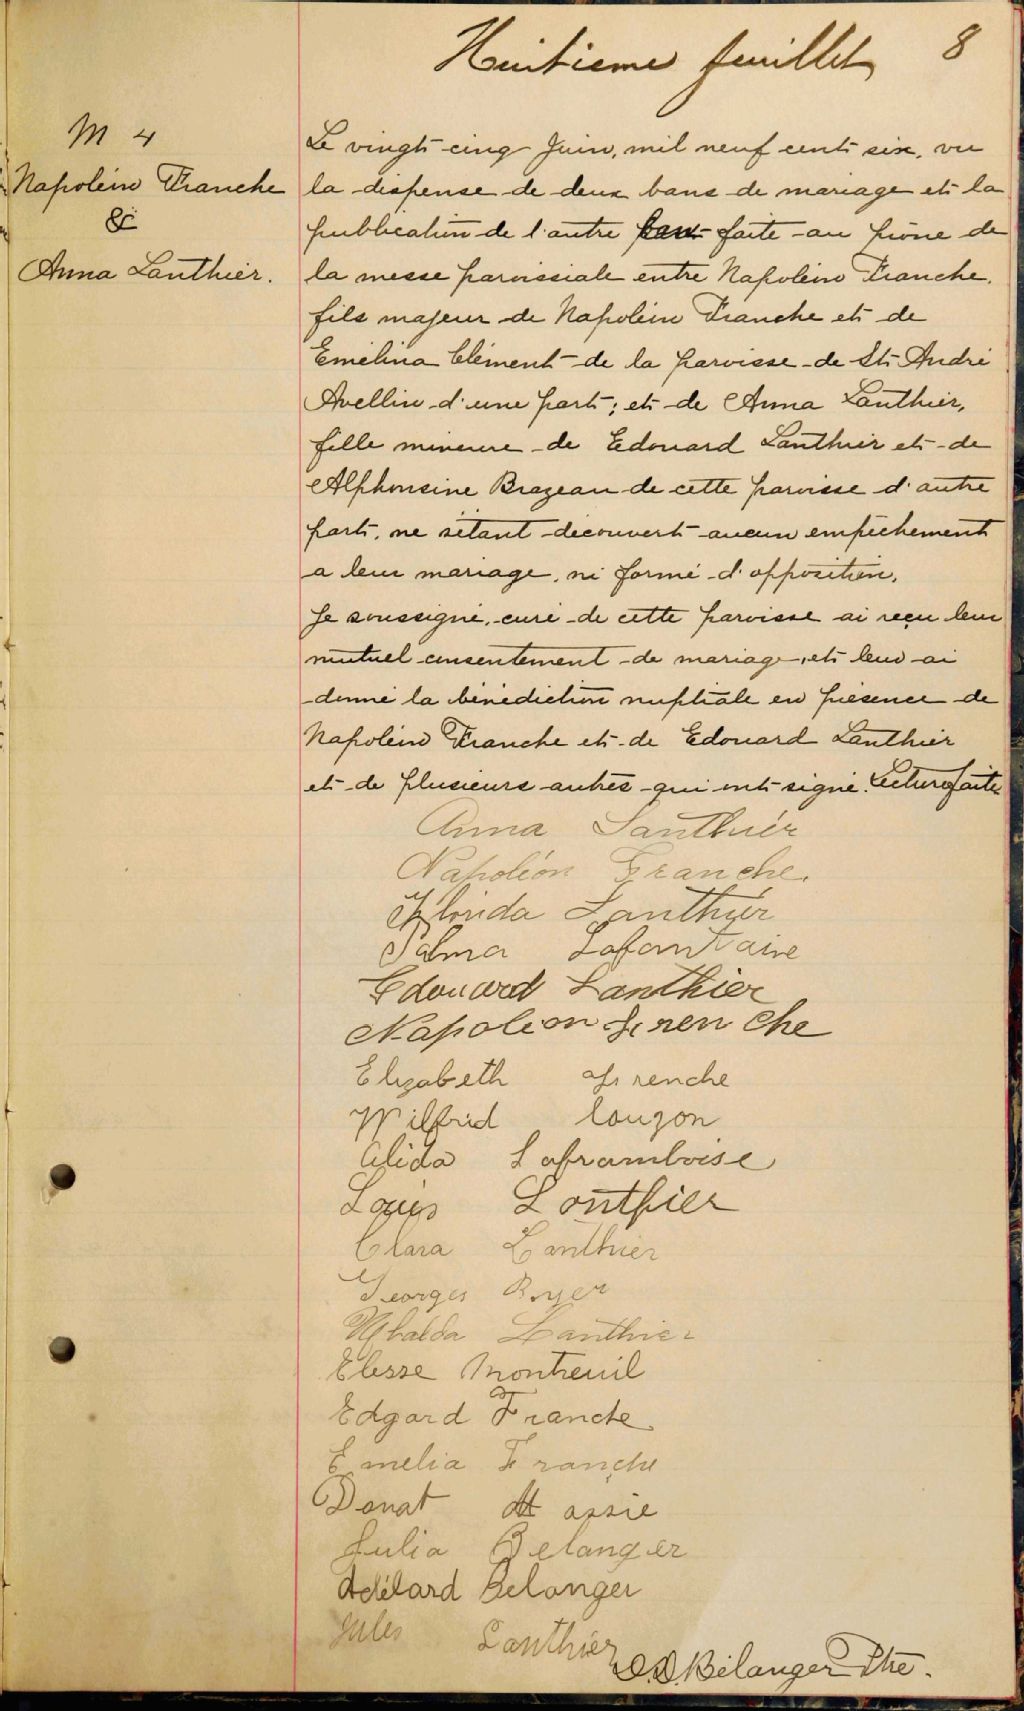 Huitieme feuillet 8
M 4
Napoléon Franche
&
Anna Lanthier.
Le vingt-cinq Juin, mil neuf cent six, vu
la dispense de deux bans de mariage et la
publication de l'autre faite au prône de
la messe paroissiale entre Napoléon Franche,
fils majeur de Napoléon Franche et de
Emélina Clément de la paroisse de St André
Avellin d'une part; et de Anna Lanthier,
fille mineure de Edouard Lanthier et de
Alphonsine Brazeau de cette paroisse d'autre
part, ne s'étant découvert aucun empêchement
a leur mariage, ni formé d'opposition,
Je soussigné, curé de cette paroisse ai reçu leur
mutuel consentement de mariage, et leur ai
donné la bénédiction nuptiale en présence de
Napoléon Franche et de Edouard Lanthier
et de plusieurs autres qui ont signé. Lecture faite
Anna Lanthier
Napoléon Franche.
Florida Lanthier
Salma Lafontaine
Edouard Lanthier
Napoleon Frenche
Elizabeth Frenche
Wilfrid Couzon
Alida Laframboise
Louis Lonthier
Clara Lanthier
Georges Royer
Ubalda Lanthier
Montreuil
Edgard Franche
Emelia Franche
Donat
Julia Belanger
Adélard Belanger
Jules Lanthier
Bélanger Ptre.